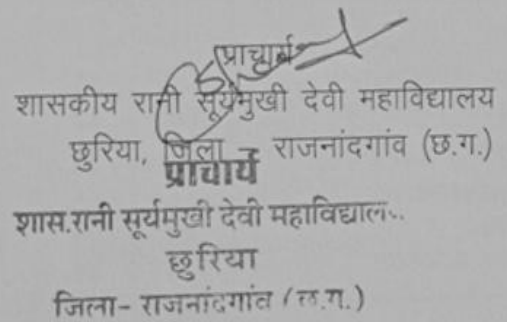 प्राचार्य
शासकीय रानी सूर्यमुखी देवी महाविद्यालय
छुरिया, जिला - राजनांदगांव (छ.ग.)
प्राचार्य
शास.रानी सूर्यमुखी देवी महाविद्याल..
छुरिया
जिला- राजनांदगांव (छ.ग.)